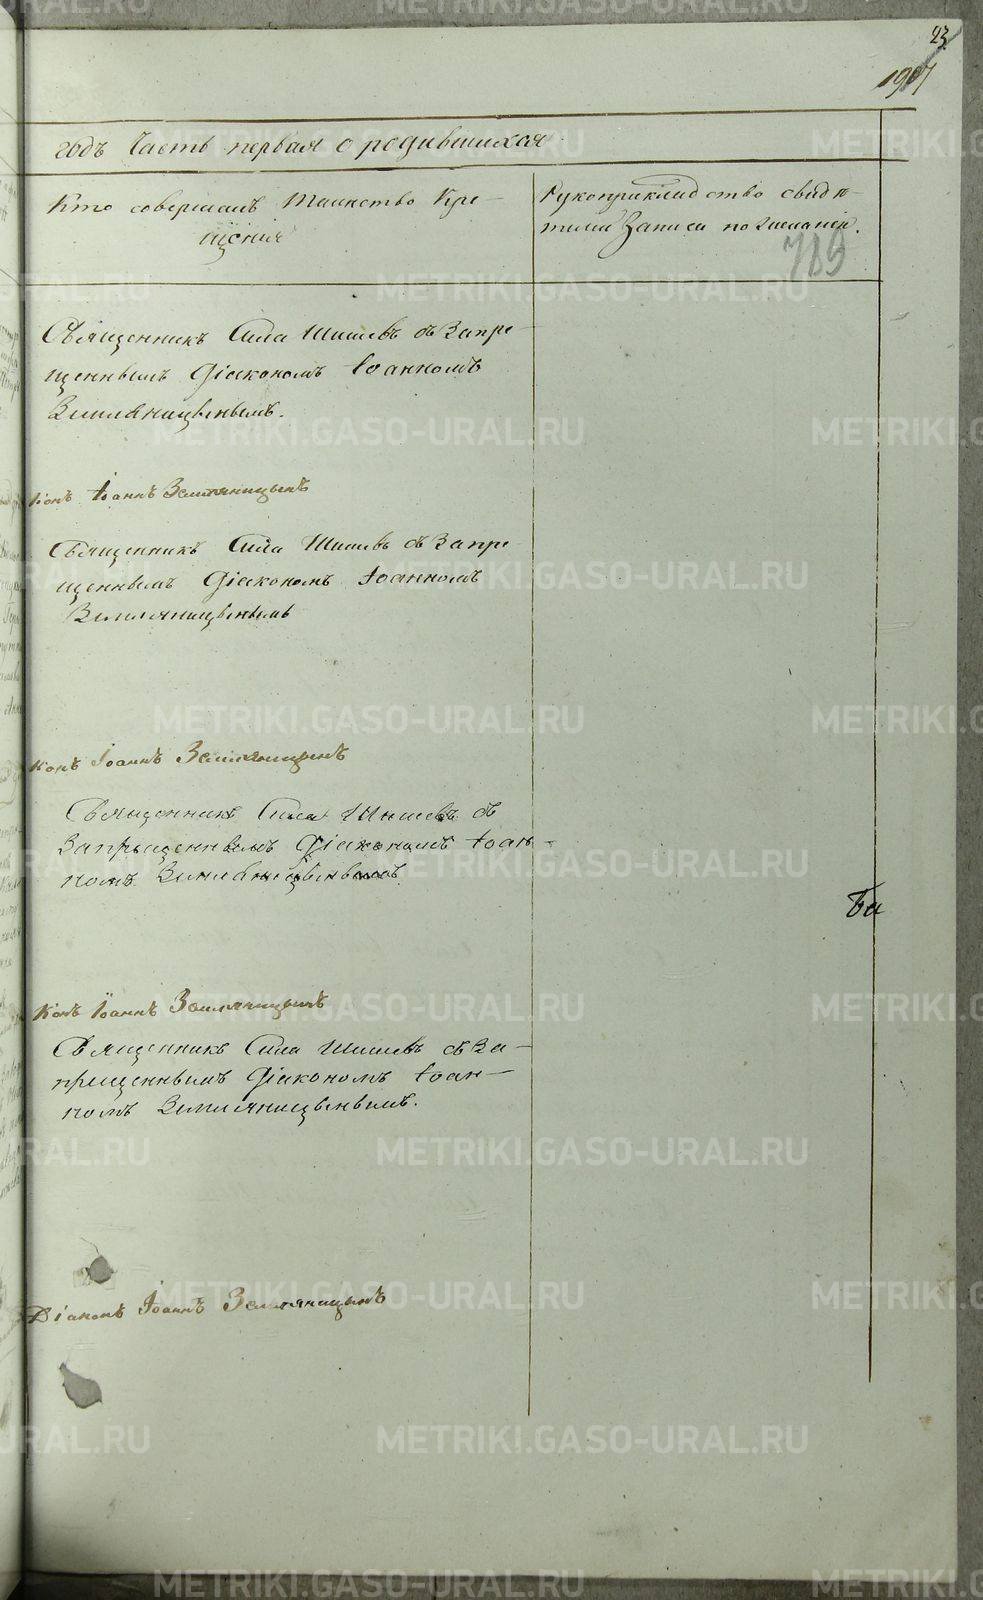 23
годъ Часть первая о родившихся
Кто совершалъ Таинство Кре-
щенія
Рукоприкладство свидѣ-
телей Записи по желанію.
789
Священникъ Сила Шишевъ съ Запре-
щеннымъ Діакономъ Іоанномъ
Земляницынымъ.
конъ Іоаннъ Земляницынъ
Священникъ Сила Шишевъ съ Запре-
щеннымъ Діакономъ Іоанномъ
Земляницынымъ
конъ Іоаннъ Земляницынъ
Священникъ Сила Шишевъ съ
Запрещеннымъ Діакономъ Іоан-
номъ Земляницынымъ
Ба
конъ Іоаннъ Земляницынъ
Священникъ Сила Шишевъ съ За-
прещеннымъ Діакономъ Іоан-
номъ Земляницынымъ.
Діаконъ Іоаннъ Земляницынъ
METRIKI.GASO-URAL.RU